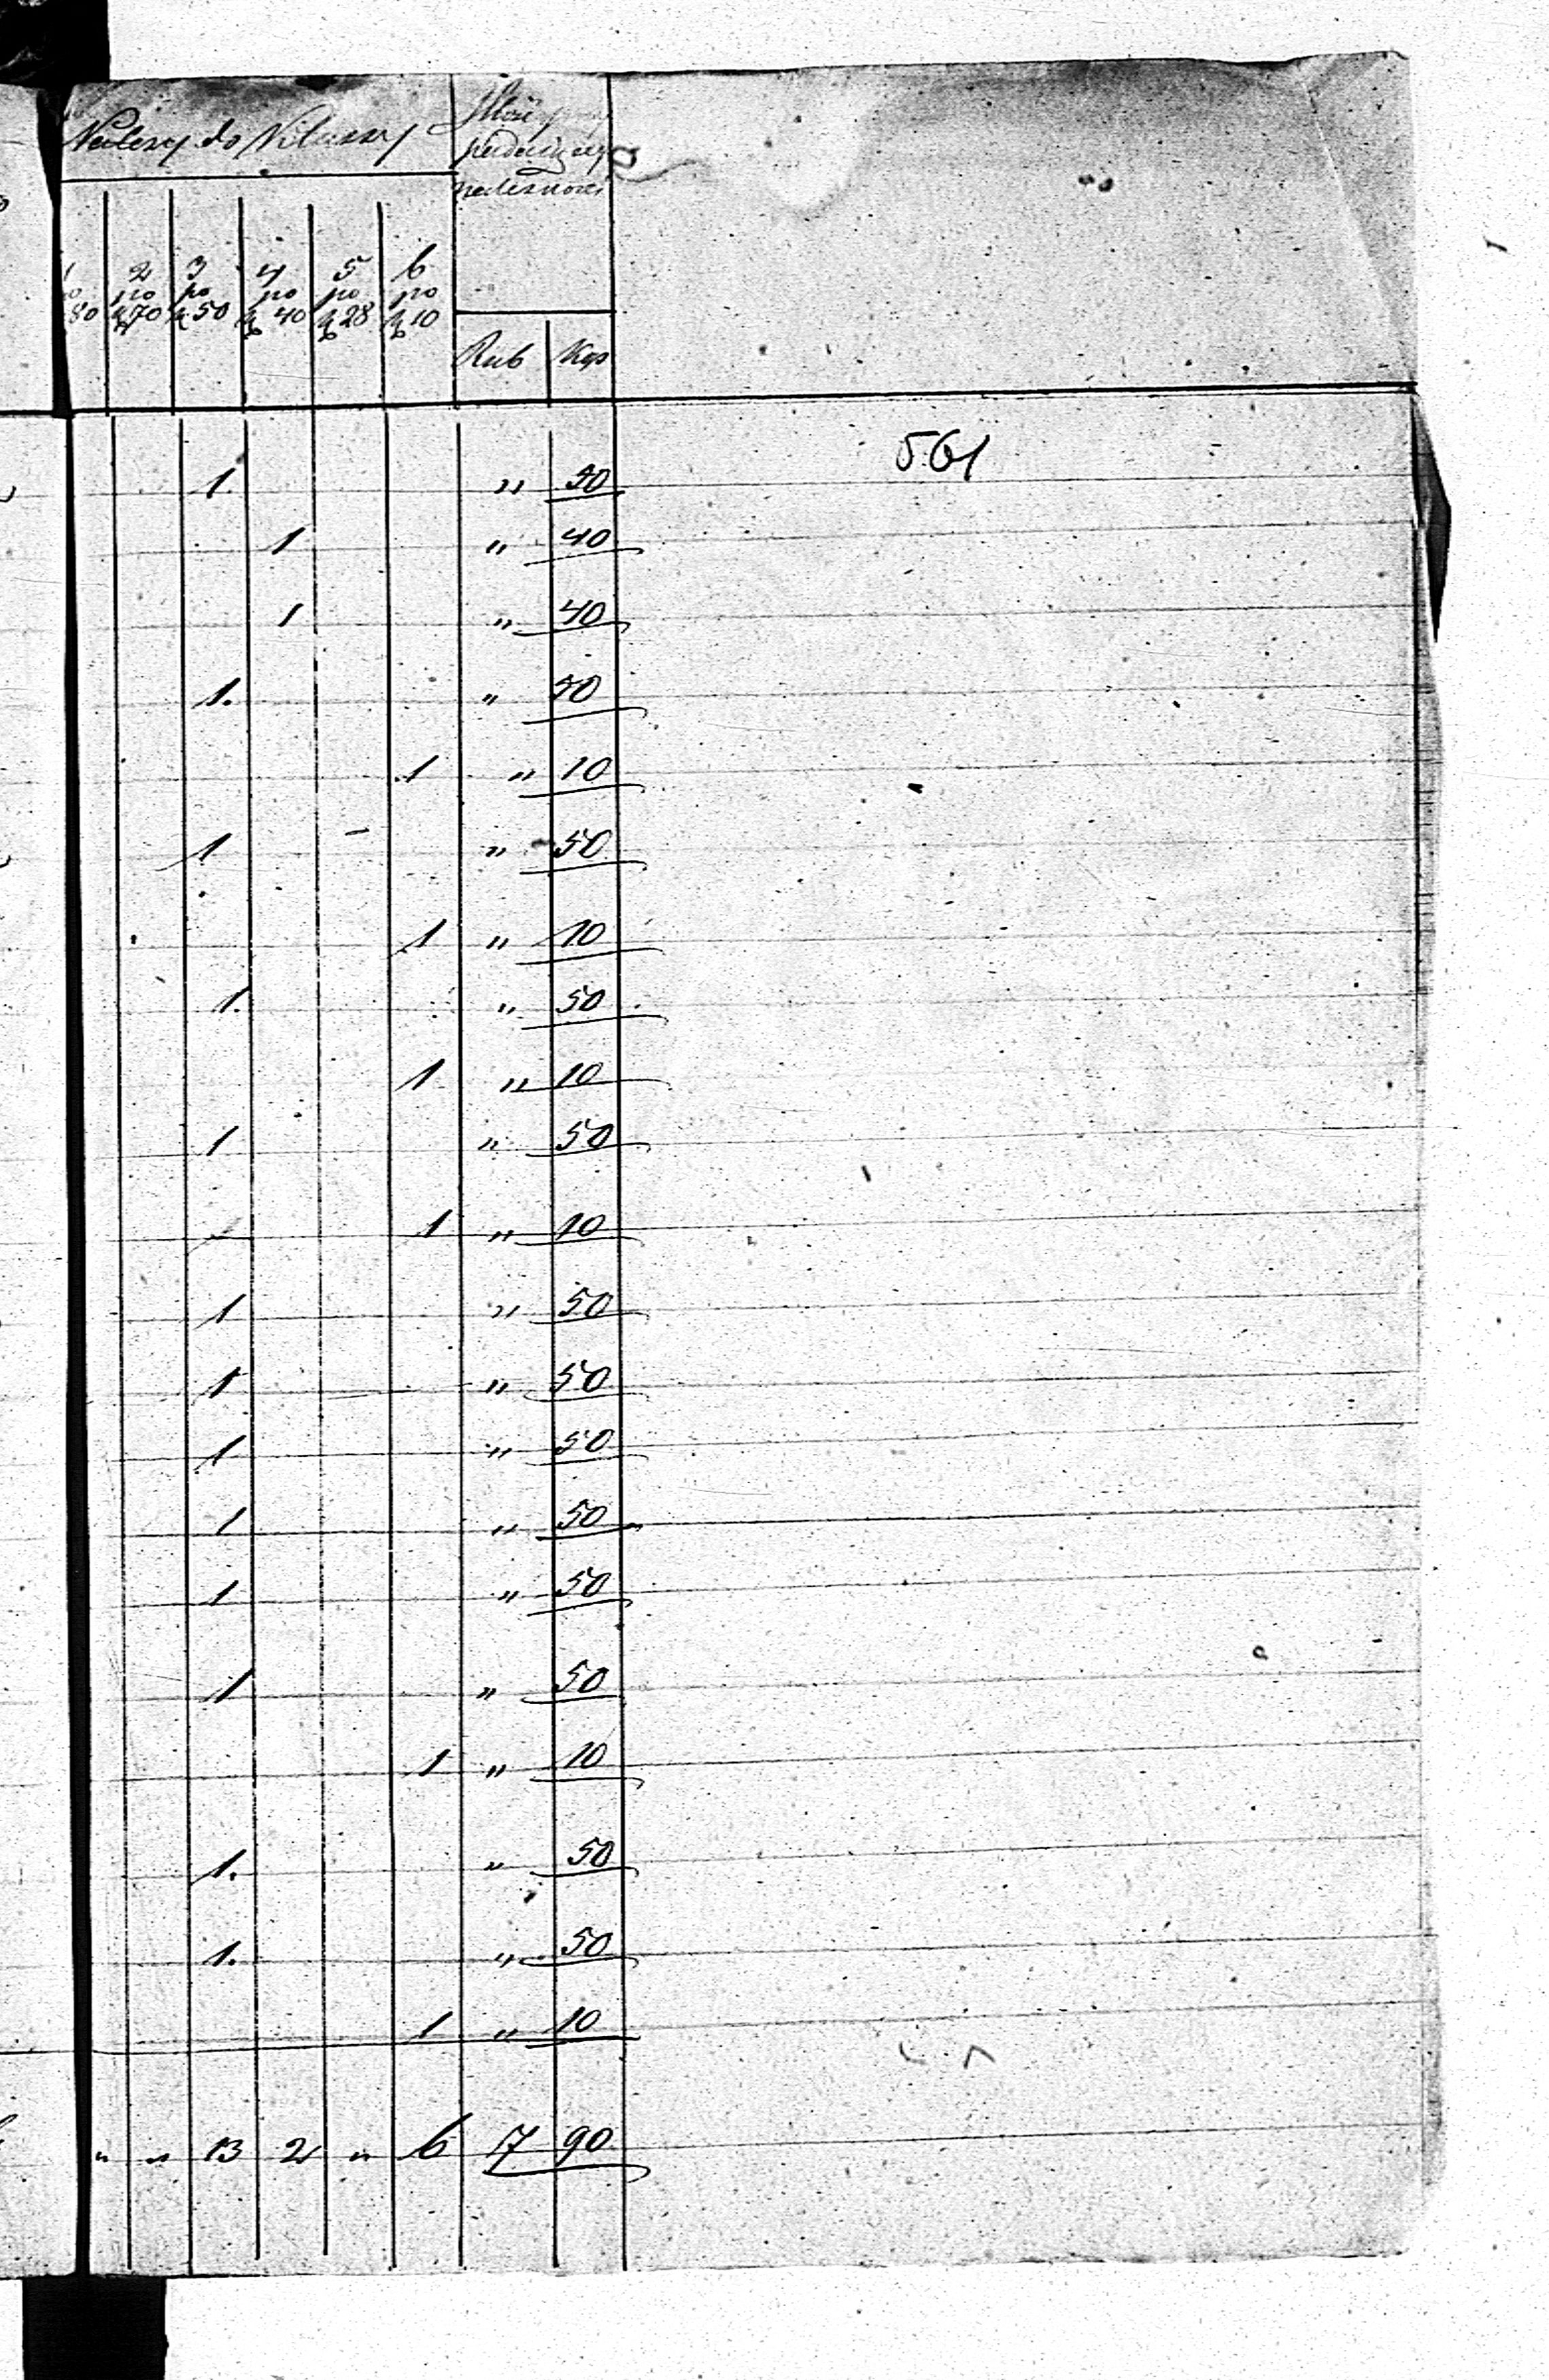 Należy do Klassy
należności
2 3 4 5 6
po po po po po
80 k 70 k 50 k 40 k 28 k 10
Rub Kop
561
1. " 50
1 " 40
1 " 40
1. " 50
1 " 10
1 " 50
1 " 10
1. " 50
1 " 10
1 " 50
1 " 10
1 " 50
1 " 50
1 " 50
1 " 50
1 " 50
1 " 50
1 " 10
1. " 50
1. " 50
1 " 10
" " 13 2 " 6 7 90